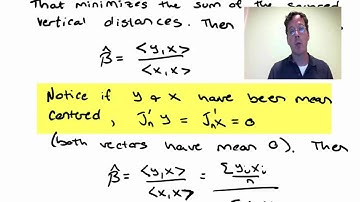 That minimizes the sum of the squared
vertical distances. Then
β̂ = <y,x>
<x,x>
Notice if y & x have been mean
centered, Jn'y = Jn'x = 0
(both vectors have mean 0). Then
β̂ = <y,x> = Σyixi
<x,x> n